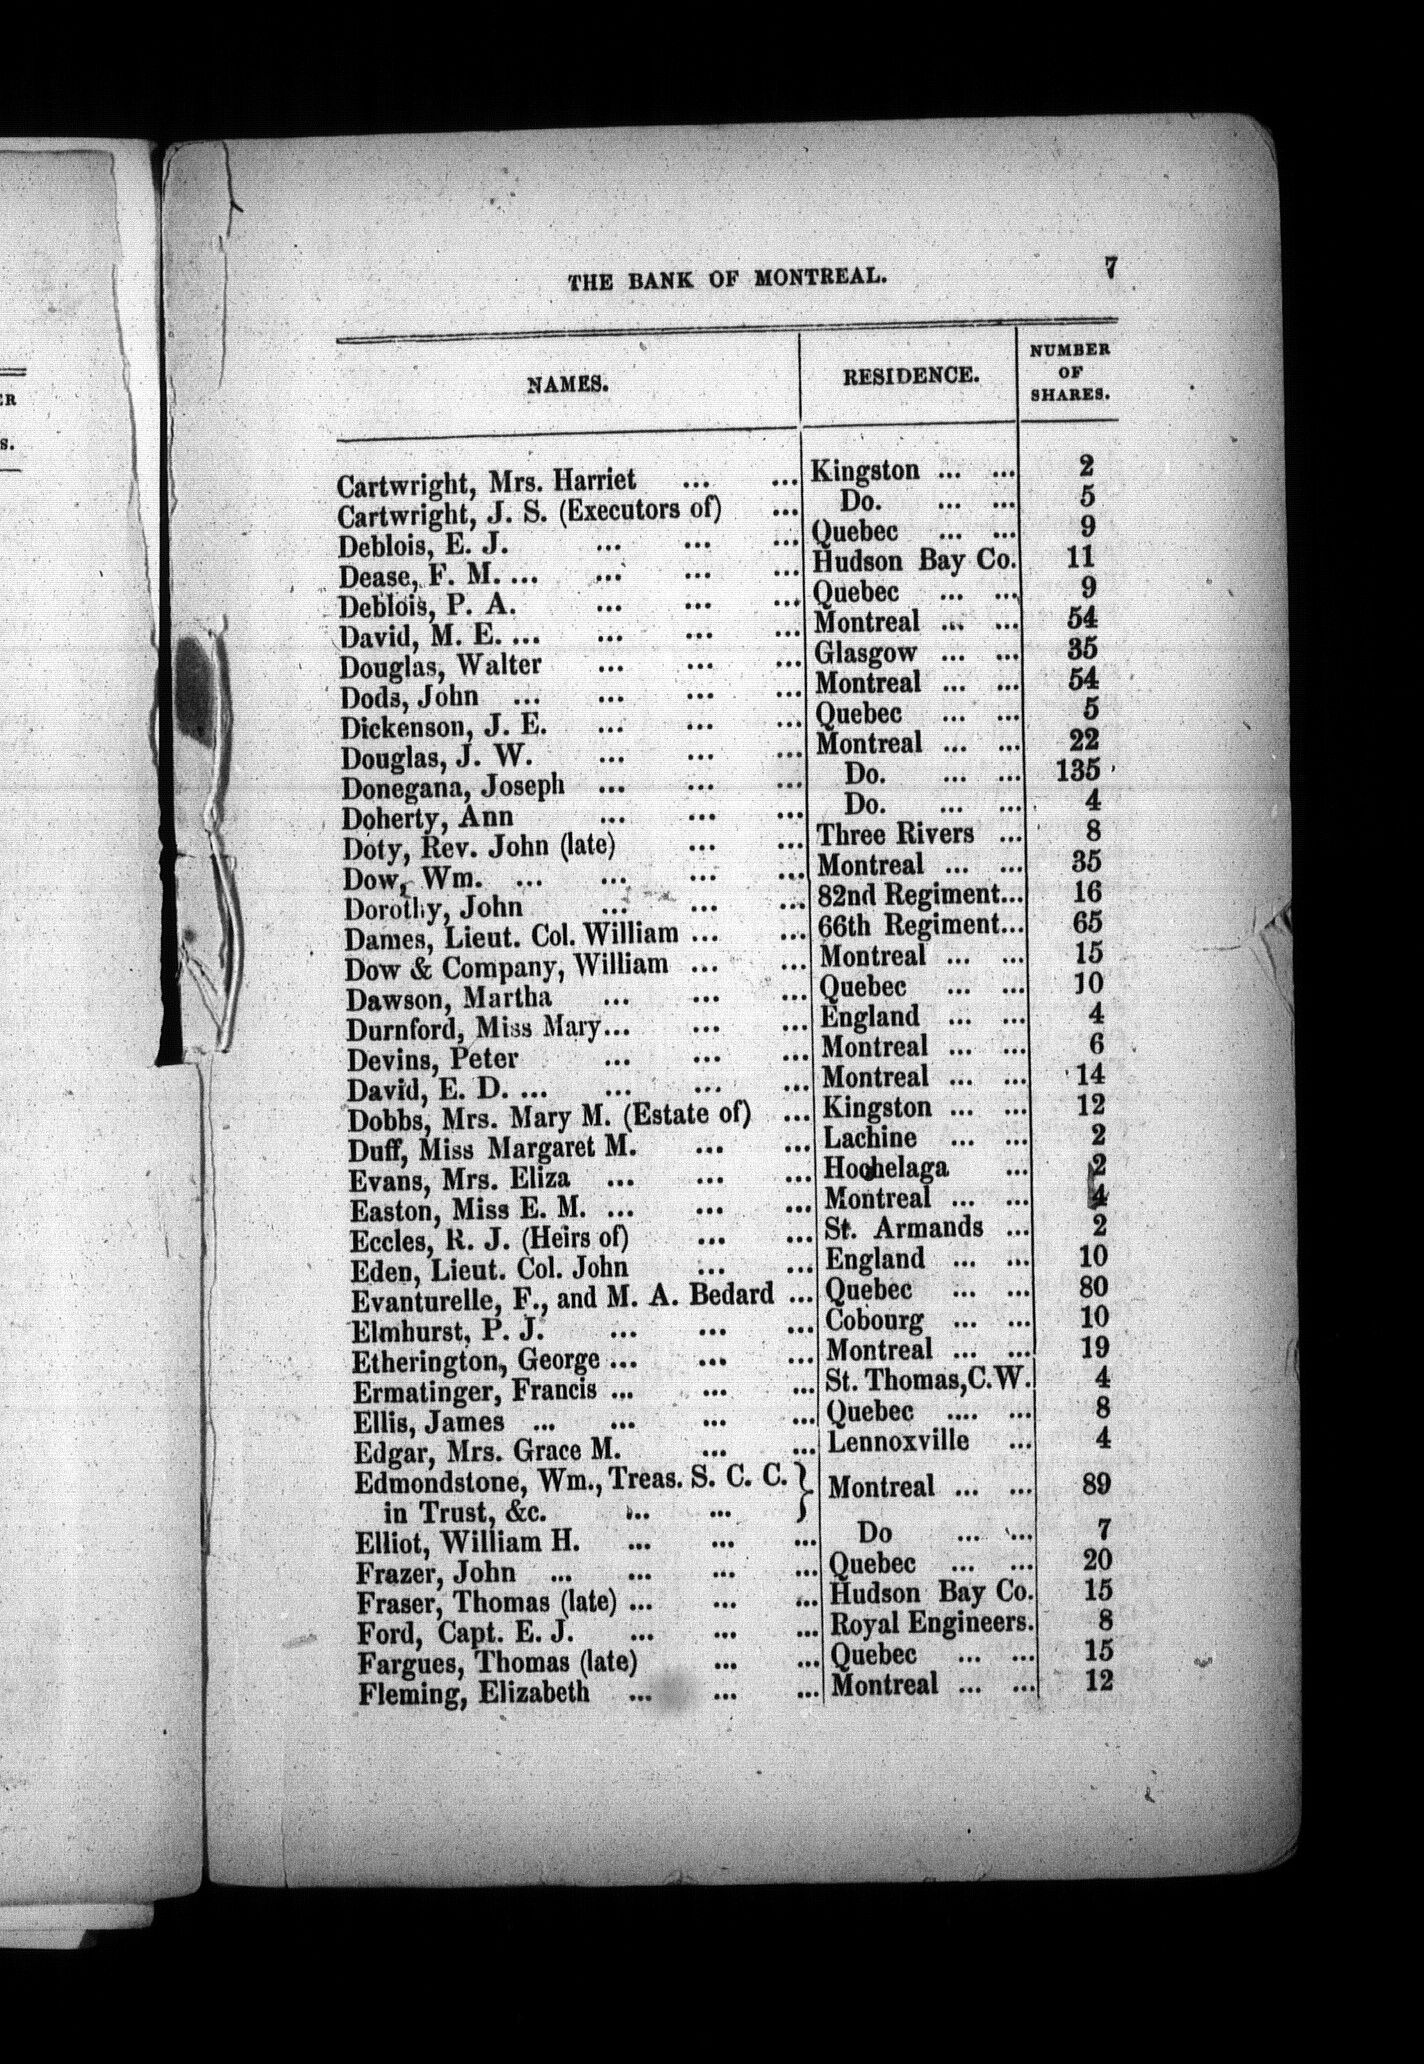 ER
S.
THE BANK OF MONTREAL. 7
NAMES. RESIDENCE. NUMBER OF SHARES.
Cartwright, Mrs. Harriet ... ... Kingston ... ... 2
Cartwright, J. S. (Executors of) ... Do. ... ... 5
Deblois, E. J. ... ... ... Quebec ... ... 9
Dease, F. M. ... ... ... ... Hudson Bay Co. 11
Deblois, P. A. ... ... ... Quebec ... ... 9
David, M. E. ... ... ... ... Montreal ... ... 54
Douglas, Walter ... ... ... Glasgow ... ... 35
Dods, John ... ... ... ... Montreal ... ... 54
Dickenson, J. E. ... ... ... Quebec ... ... 5
Douglas, J. W. ... ... ... Montreal ... ... 22
Donegana, Joseph ... ... ... Do. ... ... 135
Doherty, Ann ... ... ... Do. ... ... 4
Doty, Rev. John (late) ... ... Three Rivers ... 8
Dow, Wm. ... ... ... ... Montreal ... ... 35
Dorothy, John ... ... ... 82nd Regiment... 16
Dames, Lieut. Col. William ... ... 66th Regiment... 65
Dow & Company, William ... ... Montreal ... ... 15
Dawson, Martha ... ... ... Quebec ... ... 10
Durnford, Miss Mary... ... ... England ... ... 4
Devins, Peter ... ... ... Montreal ... ... 6
David, E. D. ... ... ... ... Montreal ... ... 14
Dobbs, Mrs. Mary M. (Estate of) ... Kingston ... ... 12
Duff, Miss Margaret M. ... ... Lachine ... ... 2
Evans, Mrs. Eliza ... ... ... Hochelaga ... 2
Easton, Miss E. M. ... ... ... Montreal ... ... 4
Eccles, R. J. (Heirs of) ... ... St. Armands ... 2
Eden, Lieut. Col. John ... ... England ... ... 10
Evanturelle, F., and M. A. Bedard ... Quebec ... ... 80
Elmhurst, P. J. ... ... ... Cobourg ... ... 10
Etherington, George ... ... ... Montreal ... ... 19
Ermatinger, Francis ... ... ... St. Thomas,C.W. 4
Ellis, James ... ... ... ... Quebec .... ... 8
Edgar, Mrs. Grace M. ... ... Lennoxville ... 4
Edmondstone, Wm., Treas. S. C. C. } Montreal ... ... 89
in Trust, &c. ... ...
Elliot, William H. ... ... ... Do ... ... 7
Frazer, John ... ... ... ... Quebec ... ... 20
Fraser, Thomas (late) ... ... ... Hudson Bay Co. 15
Ford, Capt. E. J. ... ... ... Royal Engineers. 8
Fargues, Thomas (late) ... ... Quebec ... ... 15
Fleming, Elizabeth ... ... ... Montreal ... ... 12